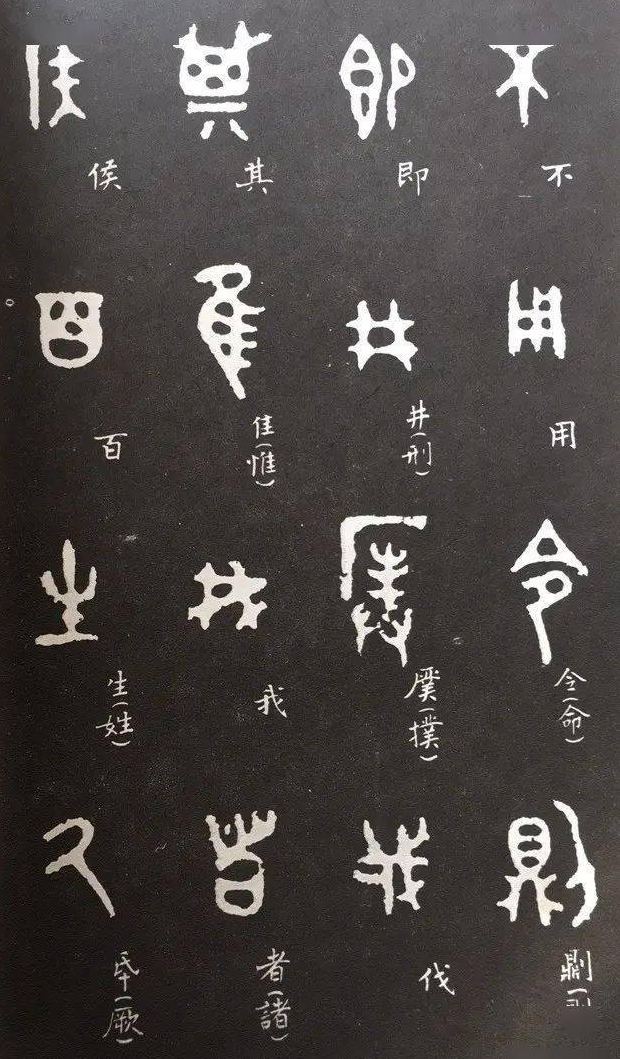 不用令(命)𠟭
即井(刑)(撲)伐
其隹(惟)我者(諸)
侯百生(姓)氒(厥)